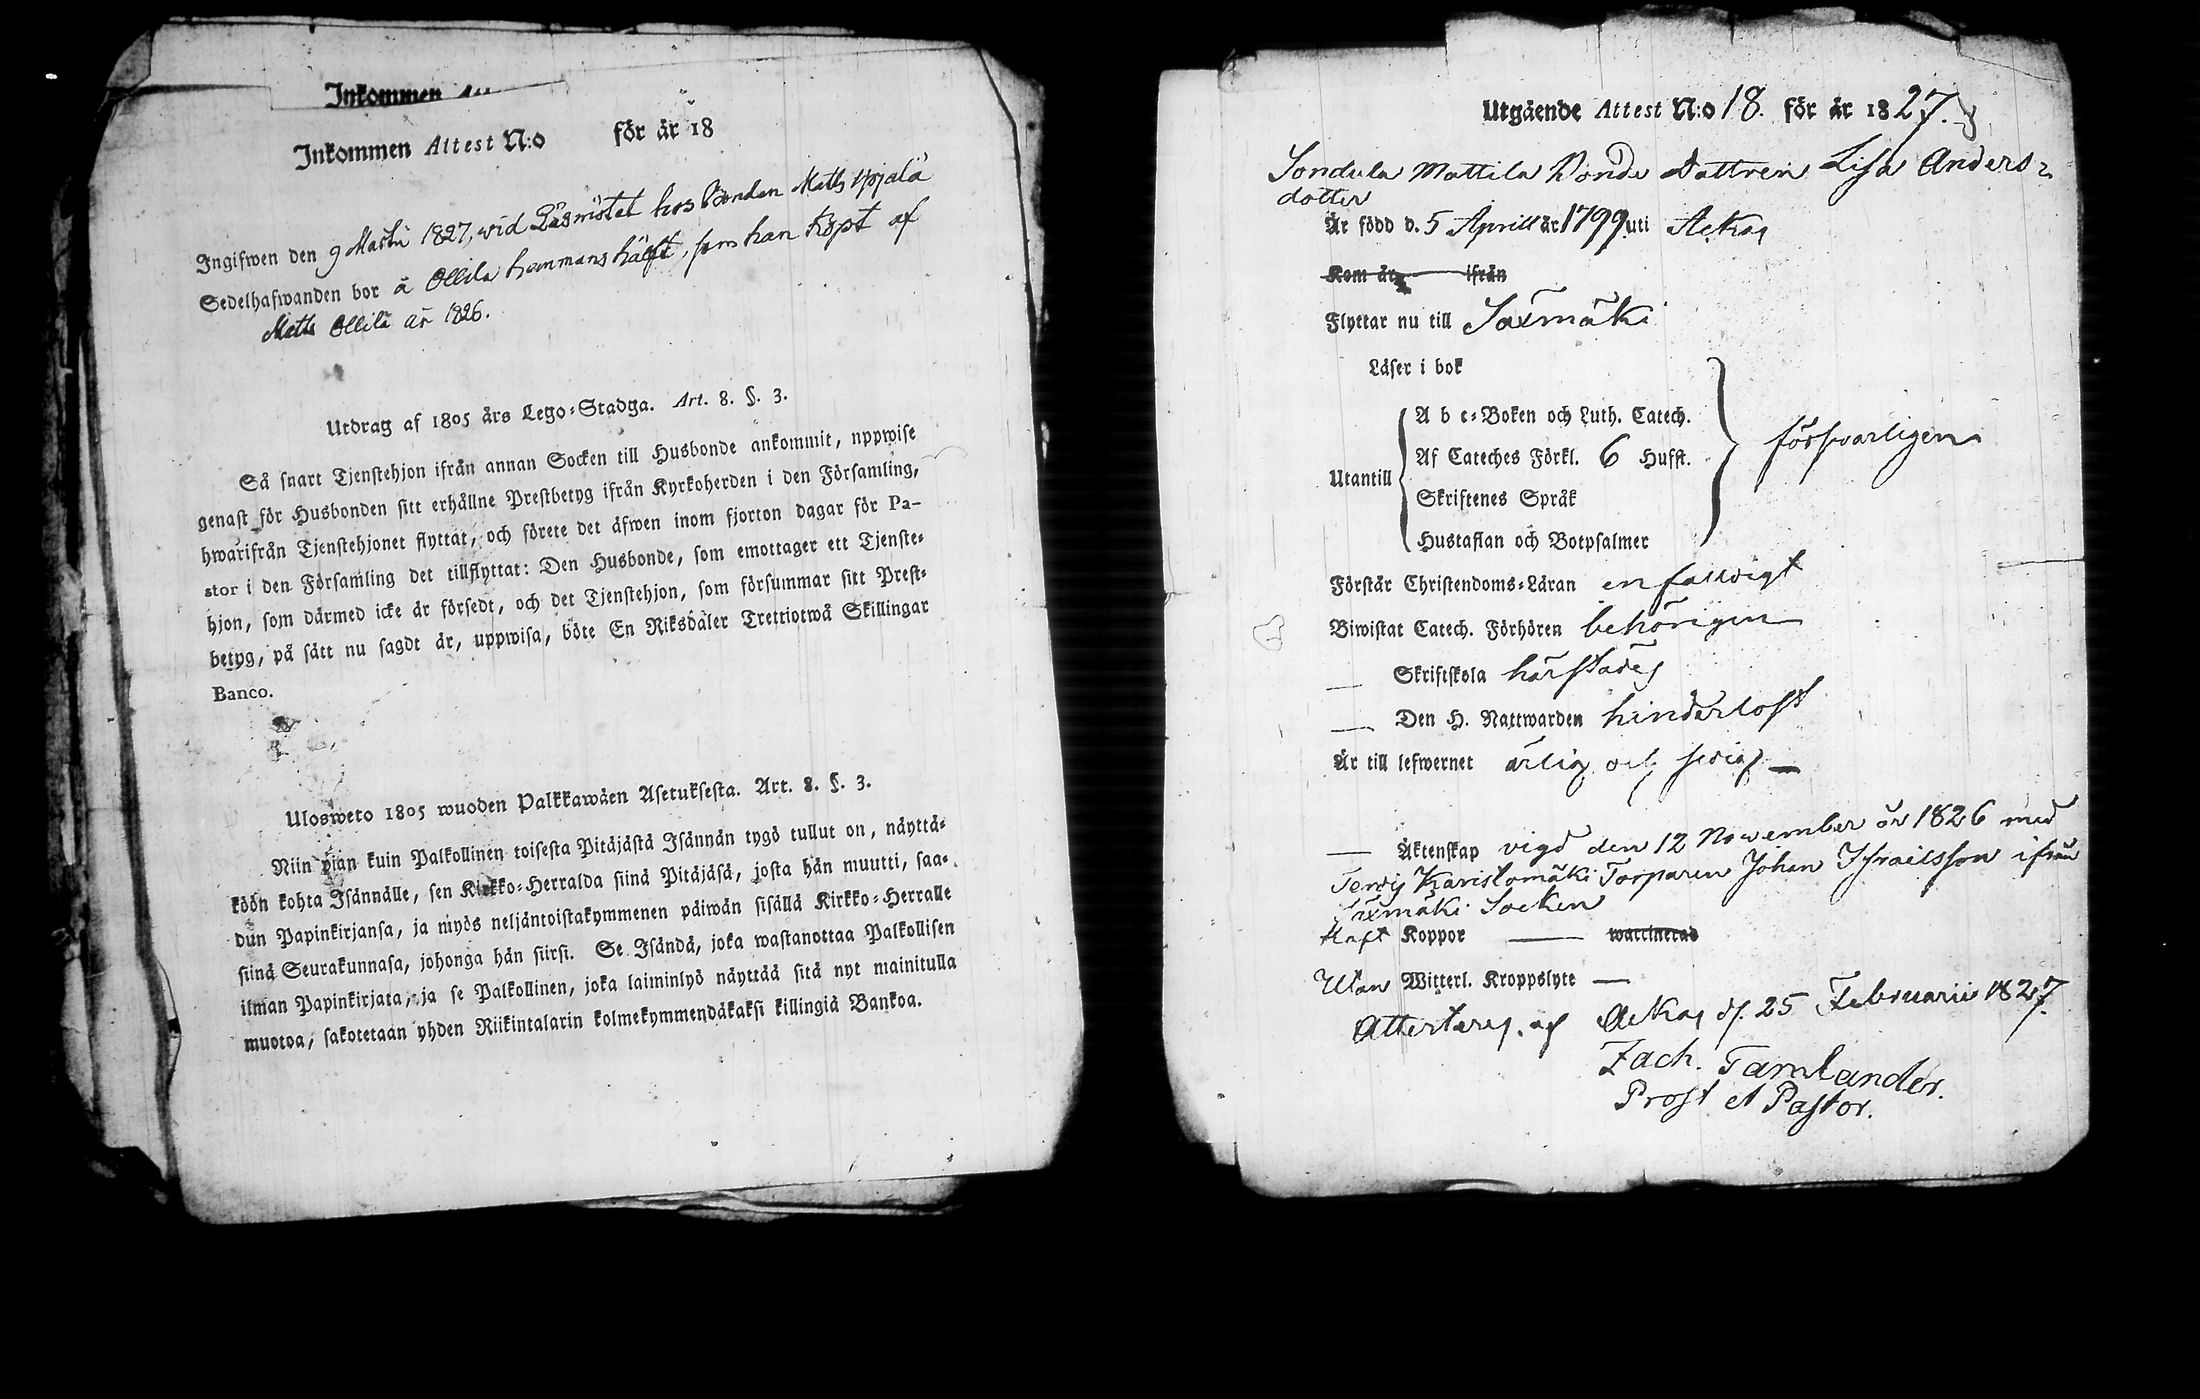 Inkommen
Inkommen Attest N:o för år 18
Ingifwen den 9 Martii 1827, wid Läsmötet hos Bonden Matts Yrjälä
Sedelhafwanden bor å Ollila hemmans hälft, som han köpt af
Matts Ollila år 1826.
Utdrag af 1805 års Lego-Stadga. Art. 8. §. 3.
Så snart Tjenstehjon ifrån annan Socken till Husbonde ankommit, uppwise
genast för Husbonden sitt erhållne Prestbetyg ifrån Kyrkoherden i den Församling,
hwarifrån Tjenstehjonet flyttat, och förete det äfwen inom fjorton dagar för Pa-
stor i den Församling det tillflyttat: Den Husbonde, som emottager ett Tjenste-
hjon, som därmed icke är försedt, och det Tjenstehjon, som försummar sitt Prest-
betyg, på sätt nu sagdt är, uppwisa, böte En Riksdaler Trettiotwå Skillingar
Banco.
Ulosweto 1805 wuoden Palkkawäen Asetuksesta. Art. 8. §. 3.
Niin pian kuin Palkollinen toisesta Pitäjästä Isännän tygö tullut on, näyttä-
köön kohta Isännälle, sen Kirkko-Herralda siinä Pitäjäsä, josta hän muutti, saa-
dun Papinkirjansa, ja myös neljäntoistakymmenen päiwän sisällä Kirkko-Herralle
siinä Seurakunnasa, johonga hän siirsi. Se Isändä, joka wastanottaa Palkollisen
ilman Papinkirjata, ja se Palkollinen, joka laiminlyö näyttää sitä nyt mainitulla
muotoa, sakotetaan yhden Riikintalarin kolmekymmendäkaksi killingiä Bankoa.
Utgående Attest N:o 18. för år 1827.
Sondula Mattila Bonde Dottren Lisa Anders-
dotter
Är född d. 5 Aprill år 1799 uti Ackas
Kom år ifrån
Flyttar nu till Säxmäki
Läser i bok
Utantill
A b c-Boken och Luth. Catech.
Af Cateches Förkl. 6 Hufst.
Skriftenes Språk
Hustaflan och Botpsalmer
försvarligen
Förstår Christendoms-Läran enfaldigt
Biwistat Catech. Förhören behörigen
— Skriftskola härstädes
— Den H. Nattwarden hinderlöst
Är till lefwernet ärlig och sedig —
— Äktenskap vigd den 12 November år 1826 med
Tervis Karistomäki Torparen Johan Isfraelsson ifrån
Säxmäki Socken
Haft Koppor — waccinerad
Utan Witterl. Kroppslyte —
Attesteras. af Ackas d. 25 Februarii 1827.
Zach. Tamlander.
Prost et Pastor.